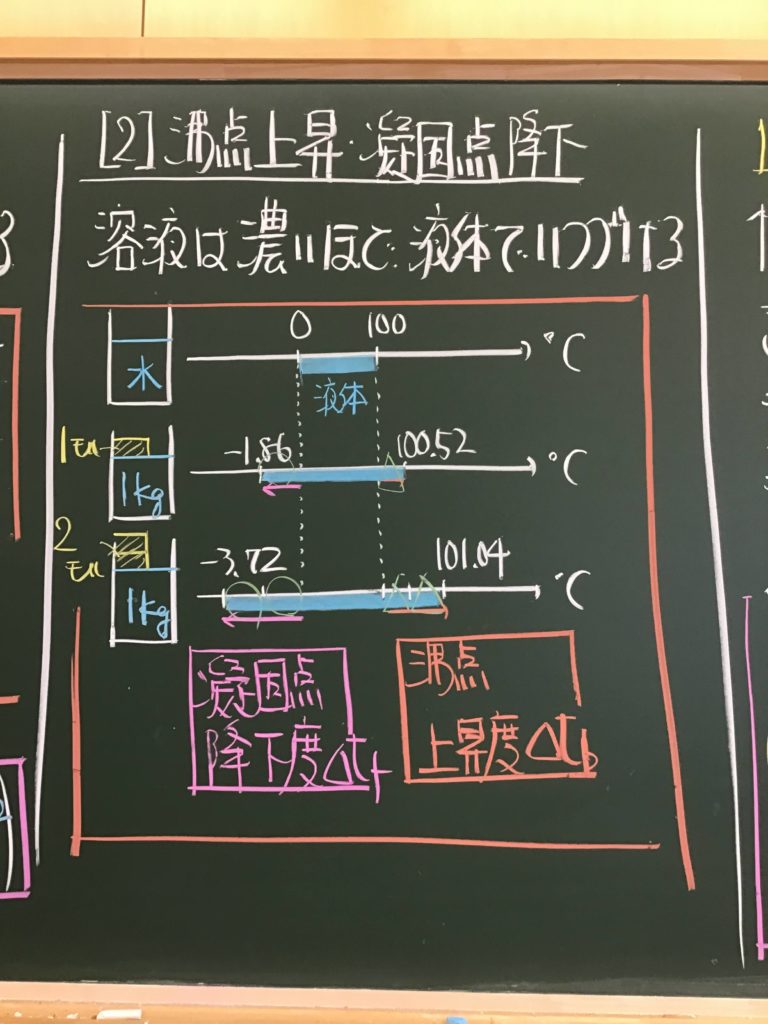 [2] 沸点上昇・凝固点降下
溶液は濃いほど、液体でいつづける
0 100 ℃
水
液体
1モル -1.86 100.52 ℃
1kg
2モル -3.72 101.04 ℃
1kg
凝固点
降下度Δtf
沸点
上昇度Δtb